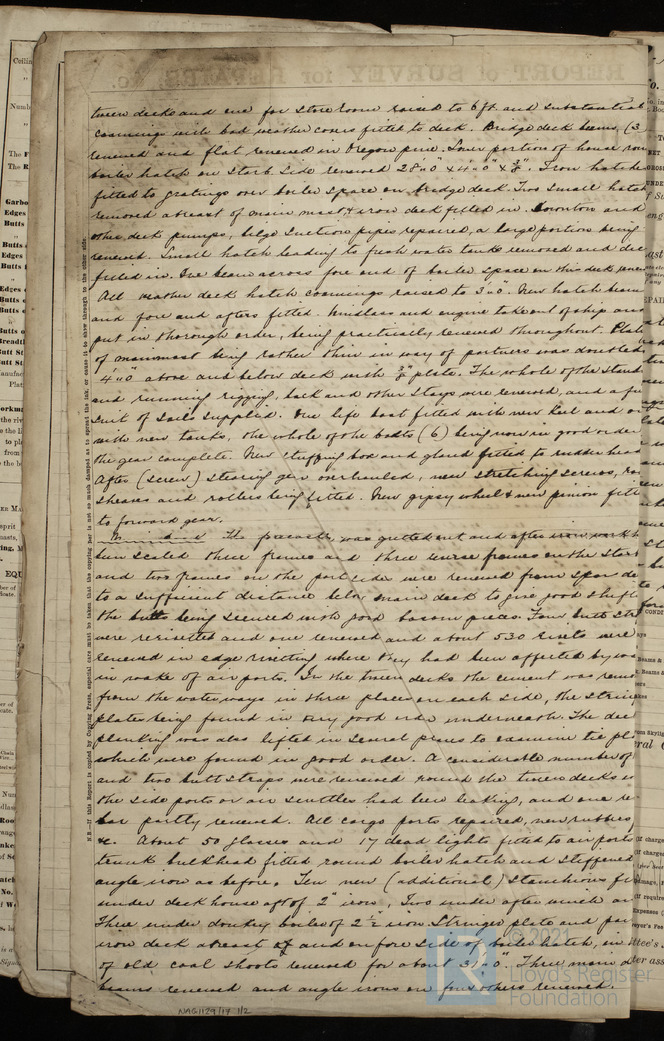 tween decks and one for Store room raised to 6 ft. and substantial
coamings with bad weather covers fitted to deck. Bridge deck beams (3
renewed and flat renewed in Oregon pine. Lower portion of house rou
boiler hatch on Starb side renewed 28'-0" x 4'-0" x 3/8". Iron hatche
fitted to gratings over boiler space on bridge deck. Two small hatch
removed abreast of main mast & iron deck fitted in. Downton and
other deck pumps, bilge suction pipes repaired, a large portion being
renewed. Small hatch leading to fresh water tanks removed and dec
filled in. One beam across fore end of boiler space on this deck renew
All weather deck hatch coamings raised to 3'-0". New hatch beam
and fore and afters fitted. Windlass and engine taken out of ship and
put in thorough order, being practically renewed throughout. Plate
of mainmast being rather thin in way of partners was doubled
4'-0" above and below deck with 3/8 plate. The whole of the stand
and running rigging, back and other stays were renewed, and a fu
suit of sails supplied. One life boat fitted with new Keel and on
with new tanks, the whole of the boats (6) being now in good order
the gear complete. New stuffing box and gland fitted to rudder head
After (screw) steering gear overhauled, new stretching screws, ro
sheaves and rollers being fitted. New gipsy wheel & new pinion fitt
to forward gear.
The forecastle was gutted out and after iron work h
been scaled three frames and three reverse frames on the Starb
and two frames on the port side were renewed from spar de
to a sufficient distance below main deck to give good shift
the butts being secured with good bosom pieces. Four butt str
were rerivetted and one renewed and about 530 rivets were
renewed in edge rivetting where they had been affected by wa
in wake of air ports. In the tween decks the cement was remo
from the waterways in three places on each side, the string
plates being found in very good order underneath. The dec
planking was also lifted in several places to examine tie pl
which were found in good order. A considerable number of
and two butt straps were renewed round the tween decks w
the side ports or air scuttles had been leaking, and one re
bar partly renewed. All cargo ports repaired, new rubbers,
&c. About 50 glasses and 17 dead lights fitted to air ports
trunk bulkhead fitted round boiler hatch and stiffened
angle iron as before. Ten new (additional) stanchions fi
under deck house aft of 2" iron, Two under after winch an
Three under donkey boiler of 2 1/2" iron. Stringer plate and par
iron deck abreast of and on fore side of boiler hatch, in
of old coal shoots renewed for about 3'-0". Three main d
beams renewed and angle irons on four others renewed.
REPORT of SURVEY for REPAIRS, &c.
N.B.—If this Report is copied by Copying Press, especial care must be taken that the copying paper is not so much damped as to spread the ink, or cause it to show through to the other side.
NAG1129/17 1/2
© 2021
Lloyd's Register
Foundation